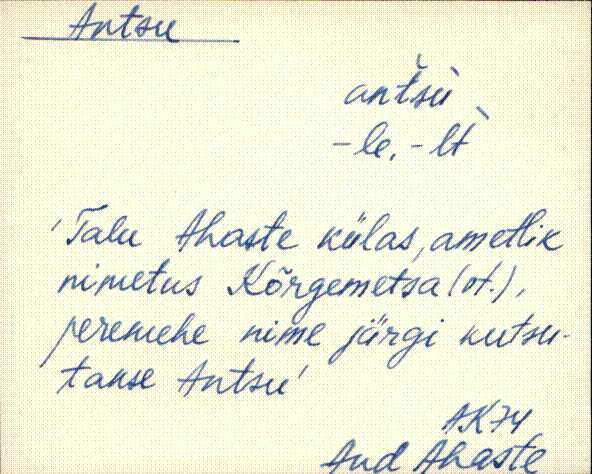 Antsu
antšù
-le, -lt̀
'Talu Ahaste külas, ametlik
nimetus Kõrgemetsa (vt.),
peremehe nime järgi kutsu-
takse Antsu'
AK74
Aud Ahaste